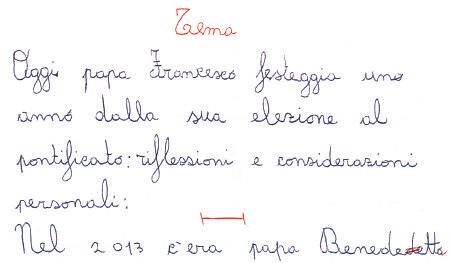 Tema
Oggi papa Francesco festeggia uno
anno dalla sua elezione al
pontificato: riflessioni e considerazioni
personali:
Nel 2013 c'era papa Benededetta